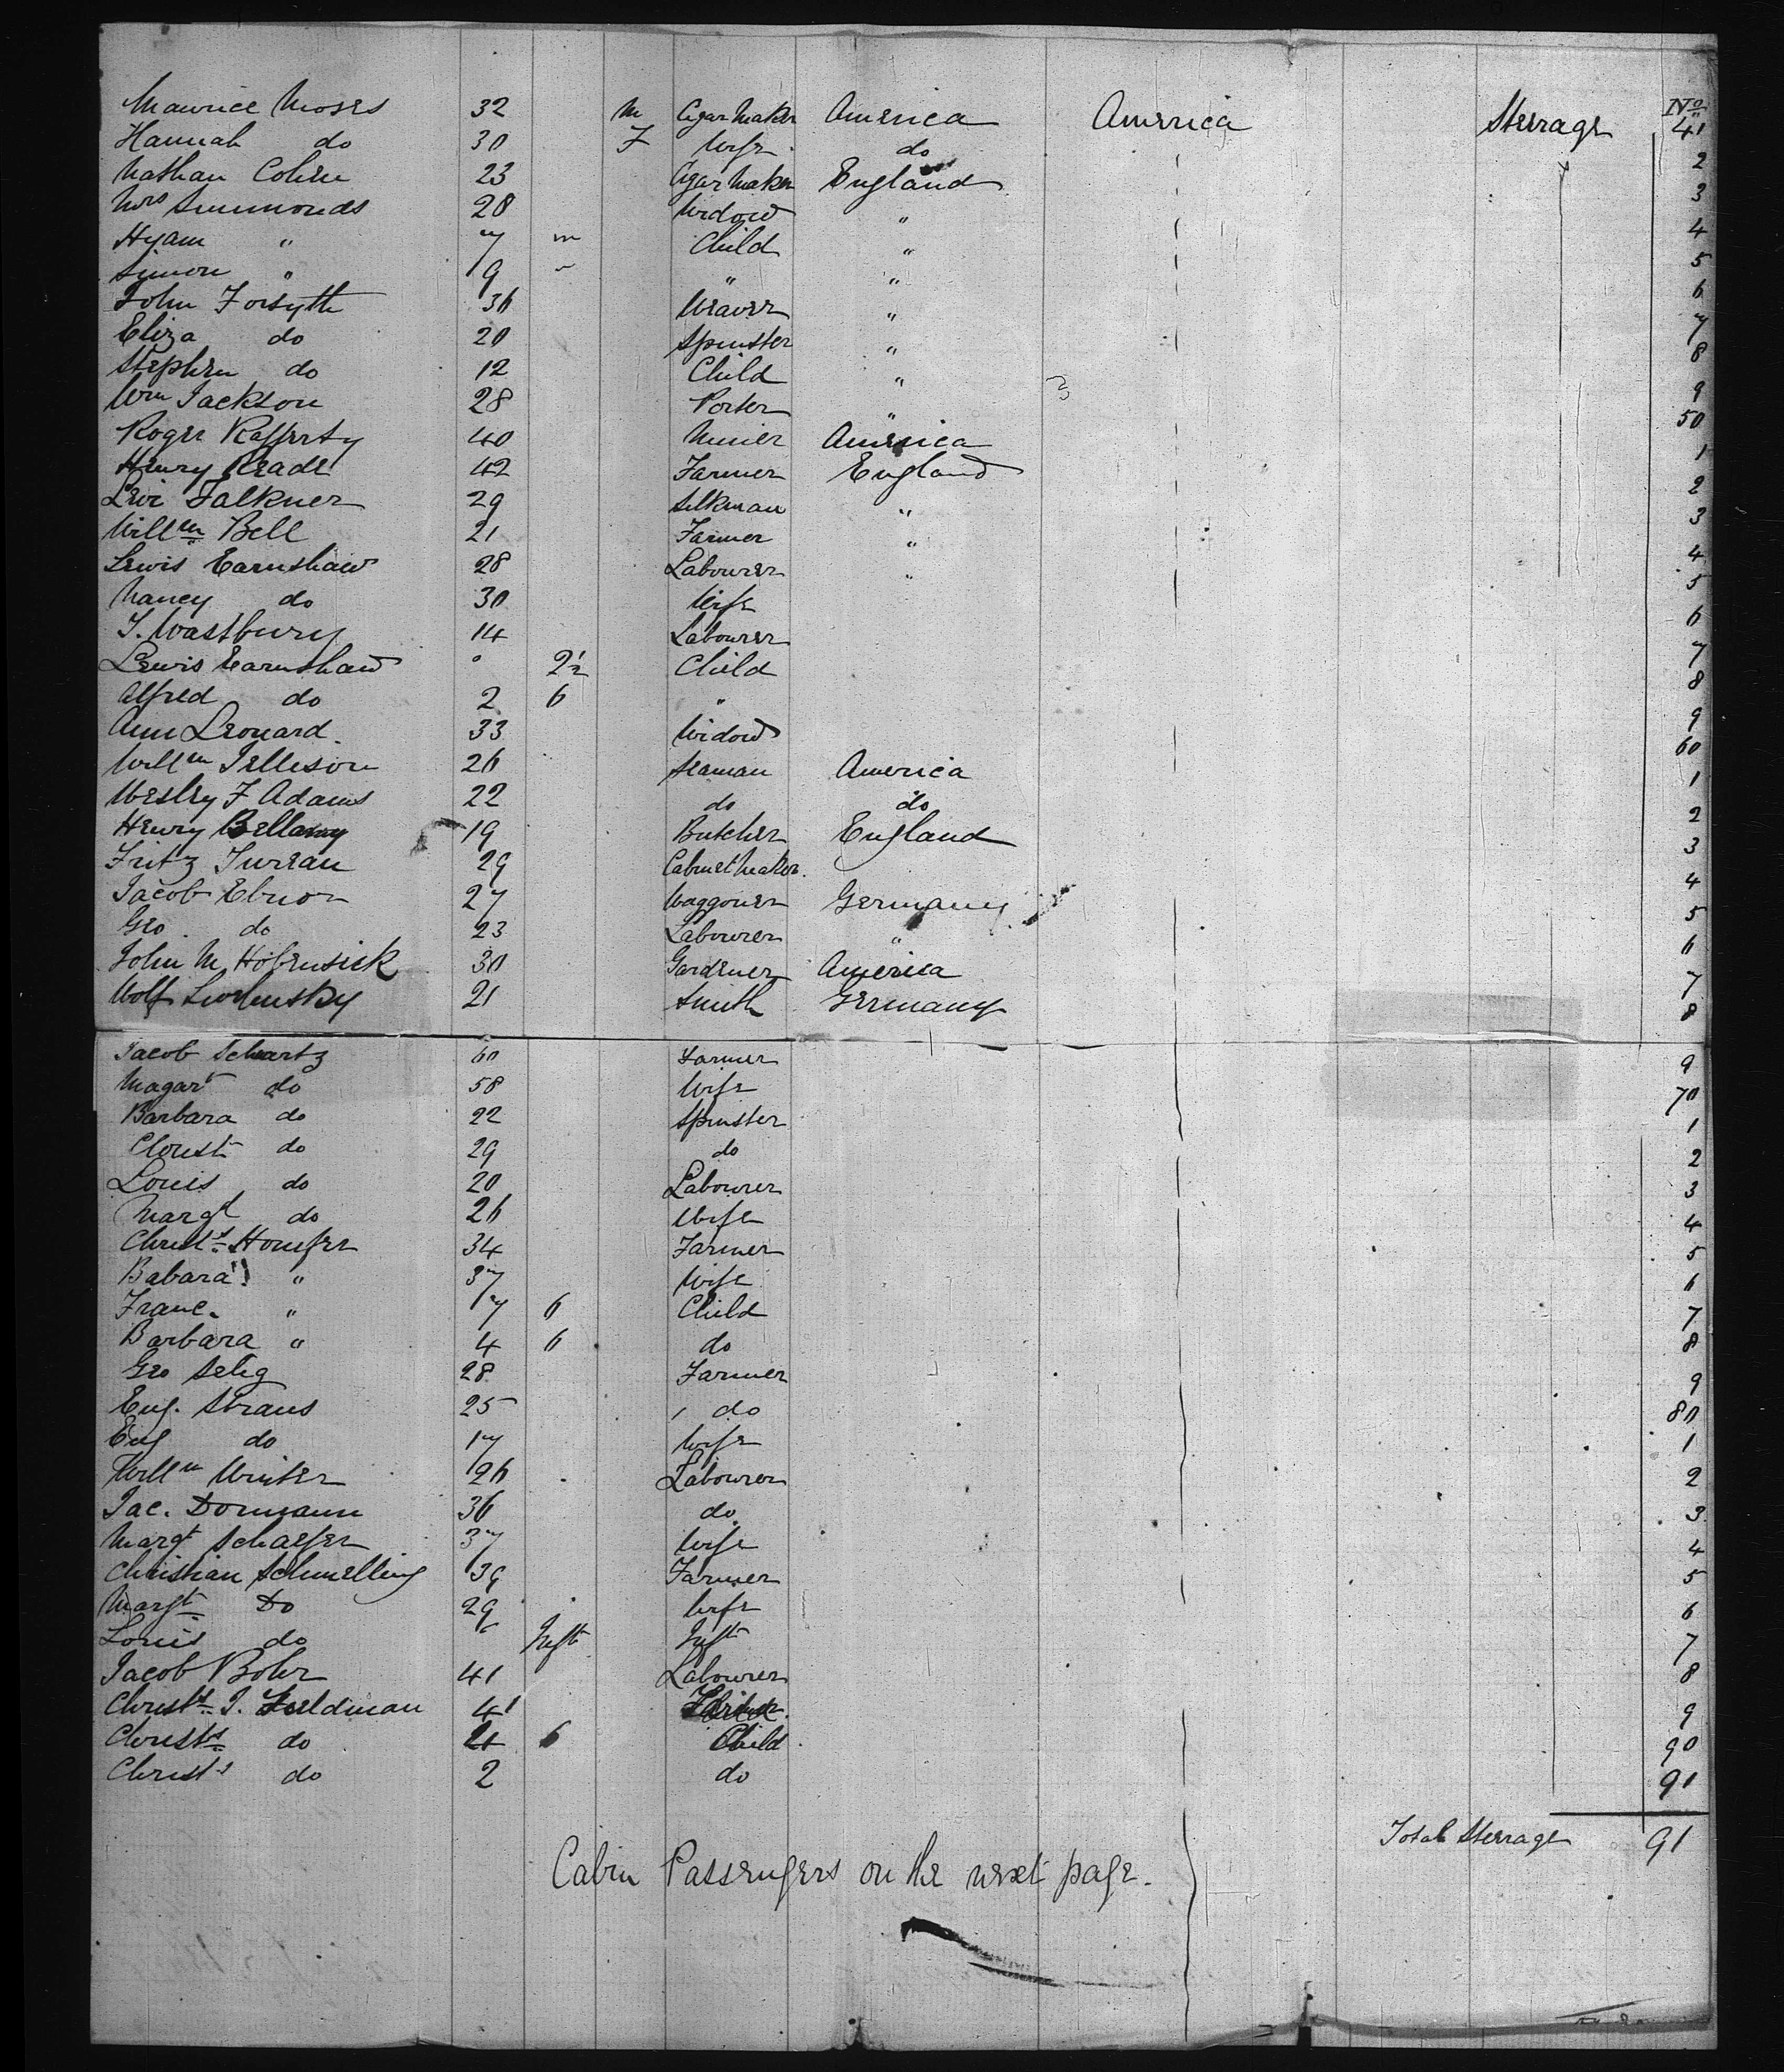 Maurice Moses 32 M Cigar Maker America America Steerage No. 41
Hannah do 30 F Wife do 2
Nathan Cohen 23 Cigar Maker England 3
Mrs Simmonds 28 Widow " 4
Hyam " 7 Child " 5
Simon " 9 " " 6
John Forsyth 36 Weaver " 7
Eliza do 20 Spinster " 8
Stephen do 12 Child " 9
Wm Jackson 28 Porter " 50
Roger Rafferty 40 Miner America 1
Henry Reade 42 Farmer England 2
Levi Falkner 29 Silkman " 3
Willm Bell 21 Farmer " 4
Lewis Earnshaw 28 Labourer " 5
Nancy do 30 Wife 6
J. Wastbury 14 Labourer 7
Lewis Earnshaw 2½ Child 8
Alfred do 2 6 " 9
Ann Leonard 33 Widow 60
Willm Jelleson 26 Seaman America 1
Wesley F Adams 22 do do 2
Henry Bellamy 19 Butcher England 3
Fritz Jureau 29 Cabinet Maker 4
Jacob Ebnor 27 Waggoner Germany 5
Geo. do 23 Labourer " 6
John M Hobensick 30 Gardener America 7
Wolf 21 Smith Germany 8
Jacob Schartz 60 Farmer 9
Magart do 58 Wife 70
Barbara do 22 Spinster 1
Christ do 29 do 2
Louis do 20 Labourer 3
Margt do 26 Wife 4
Christn Houfer 34 Farmer 5
Babara " 37 Wife 6
Franc. " 7 6 Child 7
Barbara " 4 6 do 8
Geo Selig 28 Farmer 9
Eug. Straus 25 do 80
Eug do 17 Wife 1
Willm Winter 26 Labourer 2
Jac. Dormann 36 do 3
Margt Schaefer 37 Wife 4
Christian Schmelling 39 Farmer 5
Margt Do 29 Wife 6
Louis do Inft Inft 7
Jacob Bohr 41 Labourer 8
Christn J. Feldman 41 9
Christn do 4 6 Child 90
Christn do 2 do 91
Total Steerage 91
Cabin Passengers on the next page.